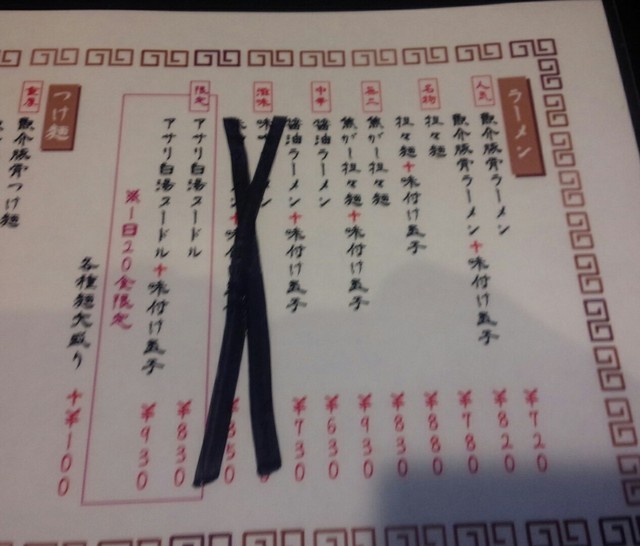 ラーメン
人気
魚介豚骨ラーメン ¥720
魚介豚骨ラーメン+味付け玉子 ¥820
名物
担々麺 ¥780
担々麺+味付け玉子 ¥880
焦がし担々麺 ¥830
焦がし担々麺+味付け玉子 ¥930
中華
醤油ラーメン ¥630
醤油ラーメン+味付け玉子 ¥730
滋味
限定
アサリ白湯ヌードル ¥830
アサリ白湯ヌードル+味付け玉子 ¥930
※一日20食限定
各種麺大盛り +¥100
つけ麺
魚介豚骨つけ麺